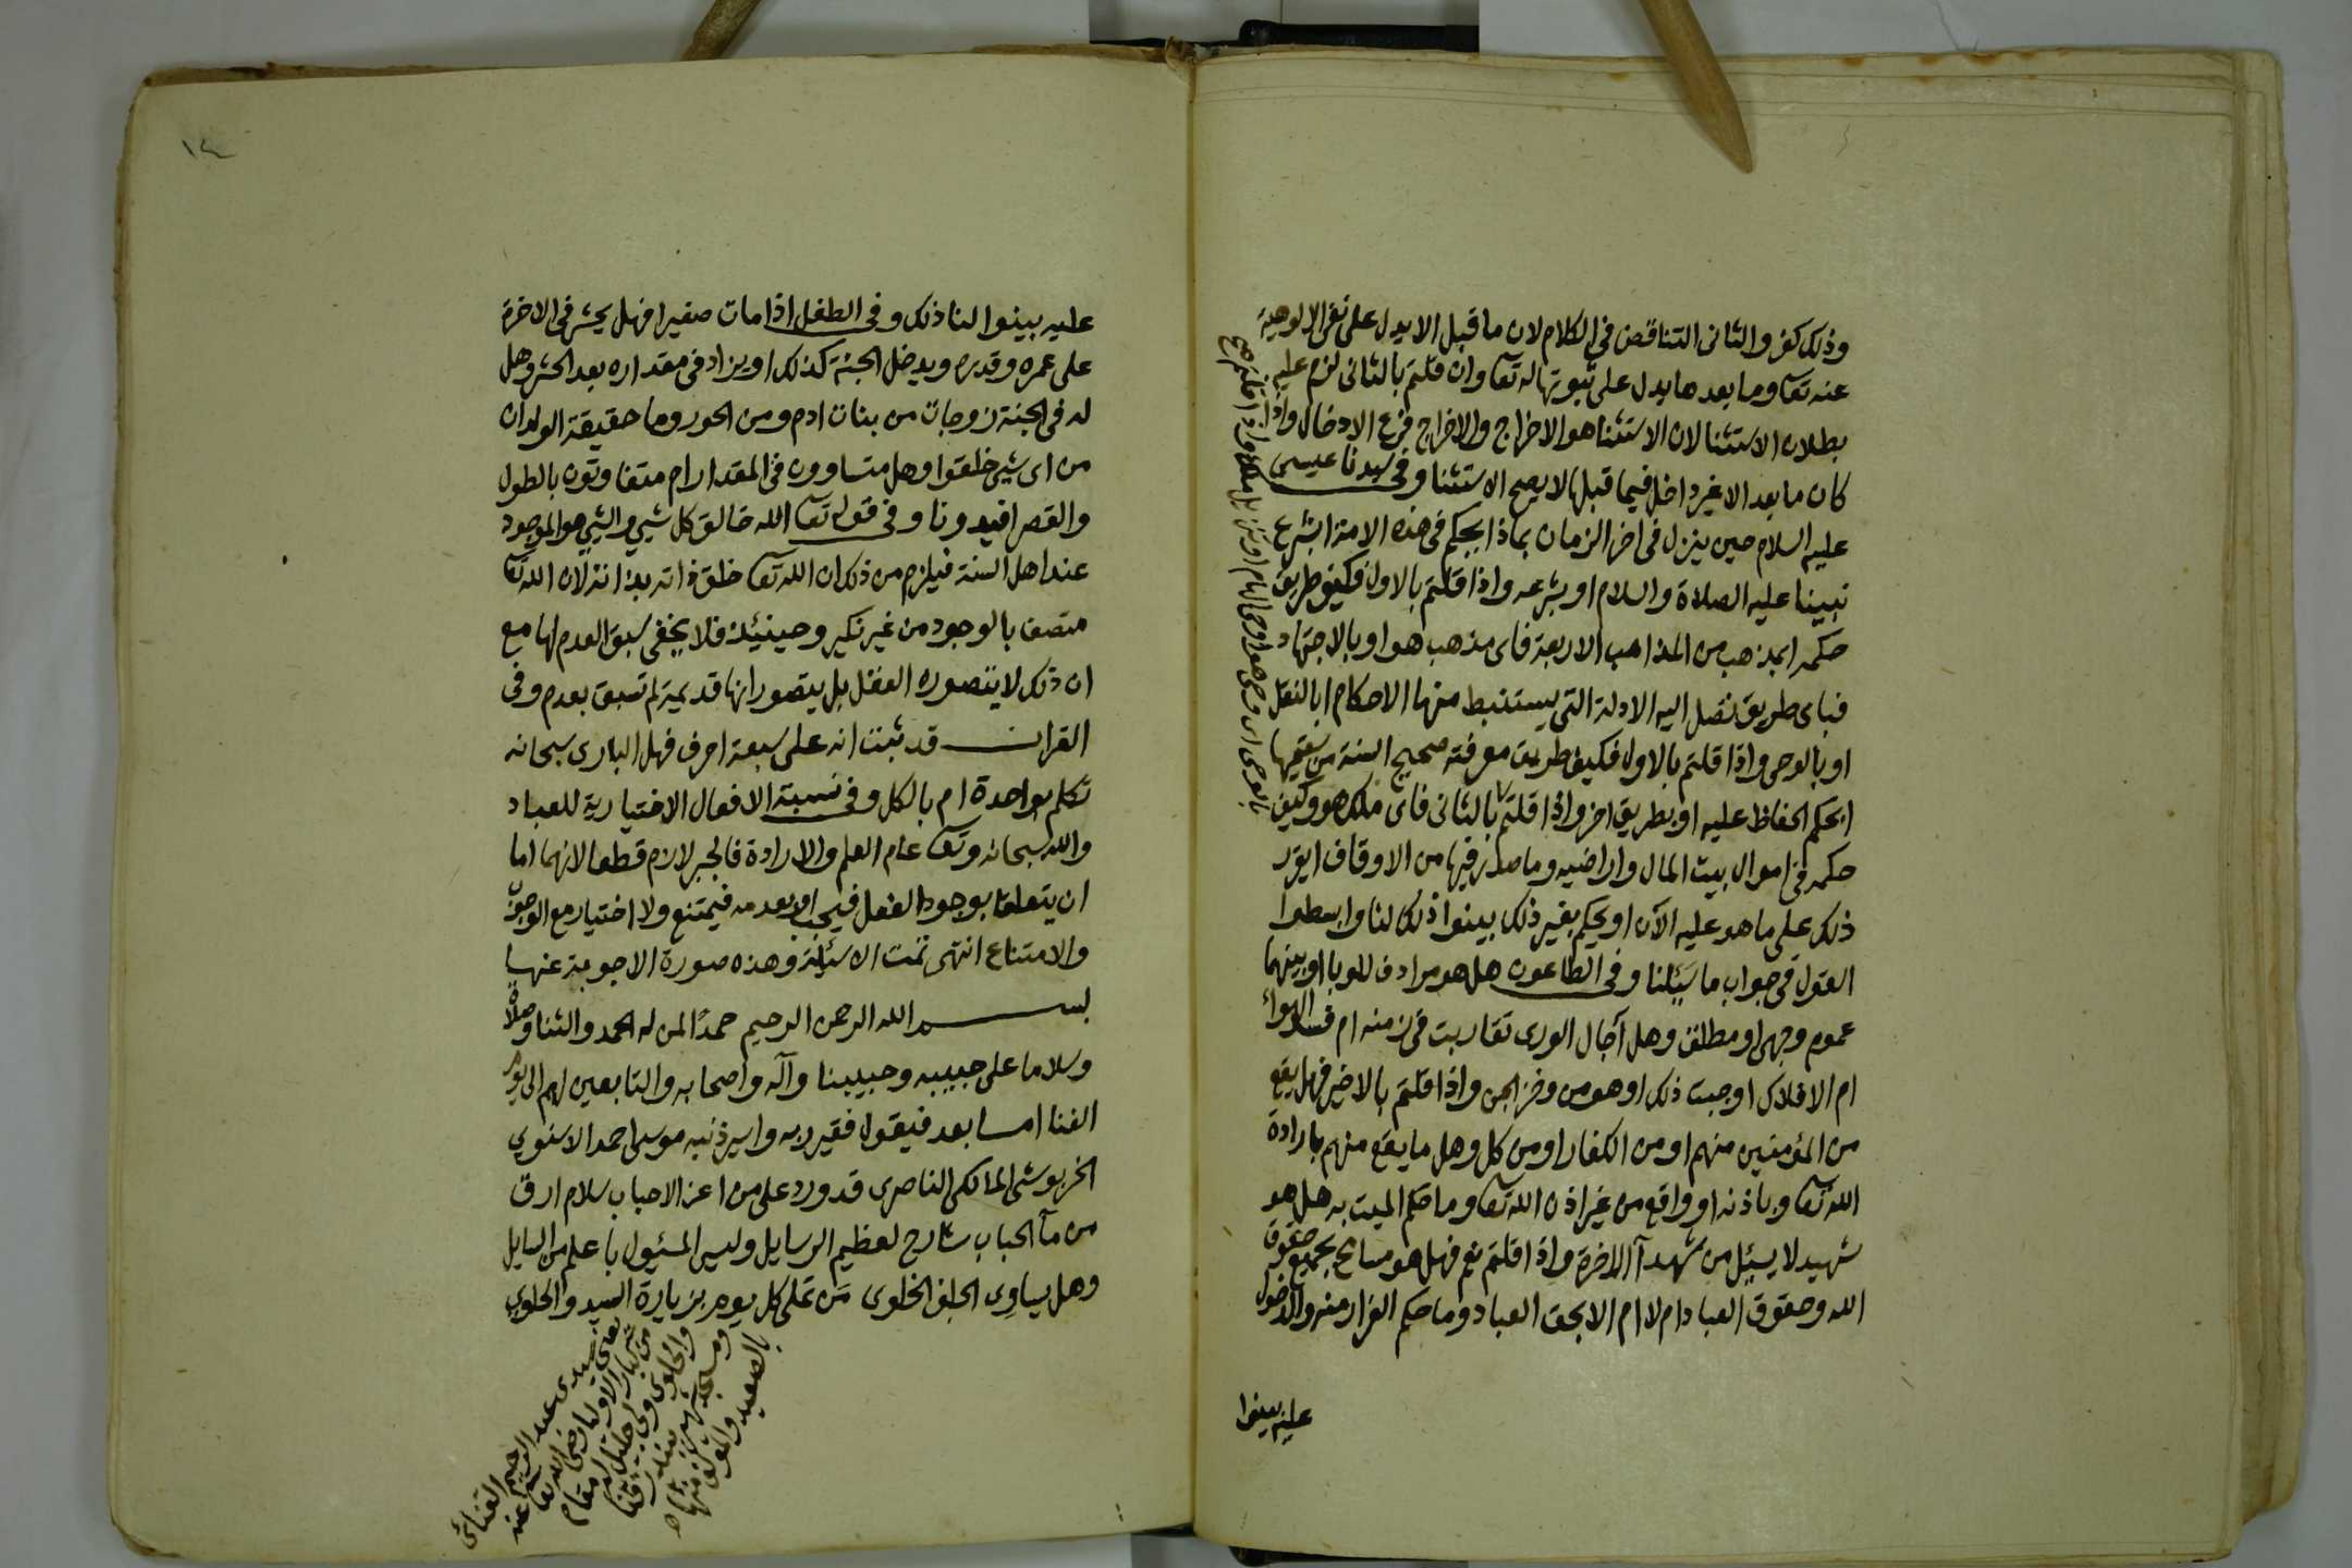 وذلك كفر والثانى التناقض فى الكلام لان ما قبل الا يدل على نفى الالوهية
عنه تعا وما بعدها يدل على ثبوتها له تعا وان قلتم بالثانى لزم عليه
بطلان الاستثنا لان الاستثنا هو الاخراج والاخراج فرع الادخال واذا
كان ما بعد الا غير داخل فيما قبلها لا يصح الاستثنا وفى سيدنا عيسى
عليه السلام حين ينزل فى اخر الزمان بماذا يحكم فى هذه الامة ابشرع
نبينا عليه الصلاة والسلام او بشرعه واذا قلتم بالاول فكيف طريق
حكمه ابمذهب من المذاهب الاربعة فاى مذهب هو او بالاجتهاد
فباى طريق تصل اليه الادلة التى يستنبط منها الاحكام ابالنقل
او بالوحى واذا قلتم بالاول فكيف طريق معرفته صحيح السنة من سقيمها
ابحكم الحفاظ عليه او بطريق اخر واذا قلتم بالثانى فاى ملك هو وكيف
حكمه فى اموال بيت المال واراضيه وما صدر فيها من الاوقاف ايقر
ذلك على ما هو عليه الآن او يحكم بغير ذلك بينوا ذلك لنا وابسطوا
القول فى جواب ما سئلنا وفى الطاعون هل هو مرادف للوبا او بينهما
عموم وجهى او مطلق وهل آجال الورى تقاربت فى زمنه ام فساد الهواء
ام الافلاك اوجبت ذلك او هو من وخز الجن واذا قلتم بالاخير فهل يقع
من المؤمنين منهم او من الكفار او من كل وهل ما يقع منهم بارادة
الله تعا وباذنه او واقع من غير اذن الله تعا وما حكم الميت به هل هو
شهيد لا يسئل من شهدآ الاخرة واذا قلتم نعم فهل هو مسامح بجميع حقوق
الله وحقوق العباد ام لا ام الا بحق العباد وما حكم الفرار منه والدخول
عليه بينوا
بالوحى اى وحى هو اوحى الهام او تنزيل ملك واذا قلتم صح
١٤
عليه بينوا لنا ذلك وفى الطفل اذا مات صغيرا فهل يحشر فى الاخرة
على عمره وقدره ويدخل الجنة كذلك او يزاد فى مقداره بعد الحشر وهل
له فى الجنة زوجات من بنات ادم ومن الحور وما حقيقة الولدان
من اى شيئ خلقوا وهل متساوون فى المقدار ام متفاوتون بالطول
والقصر افيدونا وفى قوله تعا الله خالق كل شيئ والشيئ هو الموجود
عند اهل السنة فيلزم من ذلك ان الله تعا خلق ذاته بذاته لان الله تعا
متصف بالوجود من غير نكير وحينئذ فلا يخفى سبق العدم لها مع
ان ذلك لا يتصوره العقل بل يتصور انها قديمة لم تسبق بعدم وفى
القران قد ثبت انه على سبعة احرف فهل البارى سبحانه
تكلم بواحدة ام بالكل وفى نسبة الافعال الاختيارية للعباد
والله سبحانه وتعا عام العلم والارادة فالجبر لازم قطعا لانهما اما
ان يتعلقا بوجود الفعل فيجب او بعدمه فيمتنع ولا اختيار مع الوجوب
والامتناع انتهى تمت الاسئلة وهذه صورة الاجوبة عنها
بسم الله الرحمن الرحيم حمدًا لمن له الحمد والثنا وصلاة
وسلاما على حبيبه وحبيبنا وآله واصحابه والتابعين لهم الى يوم
الفنا اما بعد فيقول فقير ربه واسير ذنبه موسى احمد الاسنوي
الخربوشى المالكى الناصرى قد ورد على من اعز الاحباب سلام ارق
من مآ الحباب شارح لعظيم الرسايل وليس المسئول باعلم من السايل
وهل يساوى الجلف الخلوى من تملى كل يوم بزيارة السيد والحلوى
يعنى سيدى عبد الرحيم القنائى
من كبار الاوليا رضى الله تعا عنه
والحلوى ولى جليل له مقام
ومسجد شهير ببندر قنا
بالصعيد والمؤلف منها ه